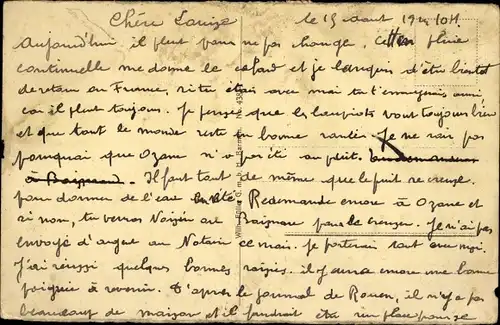 Chère Louise le 15 aout 19 10H.
Aujourd'hui il pleut pour ne pas changer, cette pluie
continuelle me donne le cafard et je languis d'être bientot
de retour en France, si tu étais avec moi tu t'ennuyerais aussi
car il pleut toujours. Je pense que les loupiots vont toujours bien
et que tout le monde reste en bonne santée. Je ne sais pas
pourquoi que Ozane n'a pas été au puit.
à Baignard. Il faut tout de même que le puit se creuse
pour donner de l'eau en été. Redemande encore à Ozane et
si non, tu verras Voisin ou Baignare pour le creuser. Je n'ai pas
envoyé d'argent au Notaire ce mois. Je porterai tout avec moi.
J'ai réussi quelques bonnes il y aura encore une bonne
poignée à revenir. D'après le journal de Rouen, il n'y a pas
beaucoup de maison et il faudrait être sur place pour se